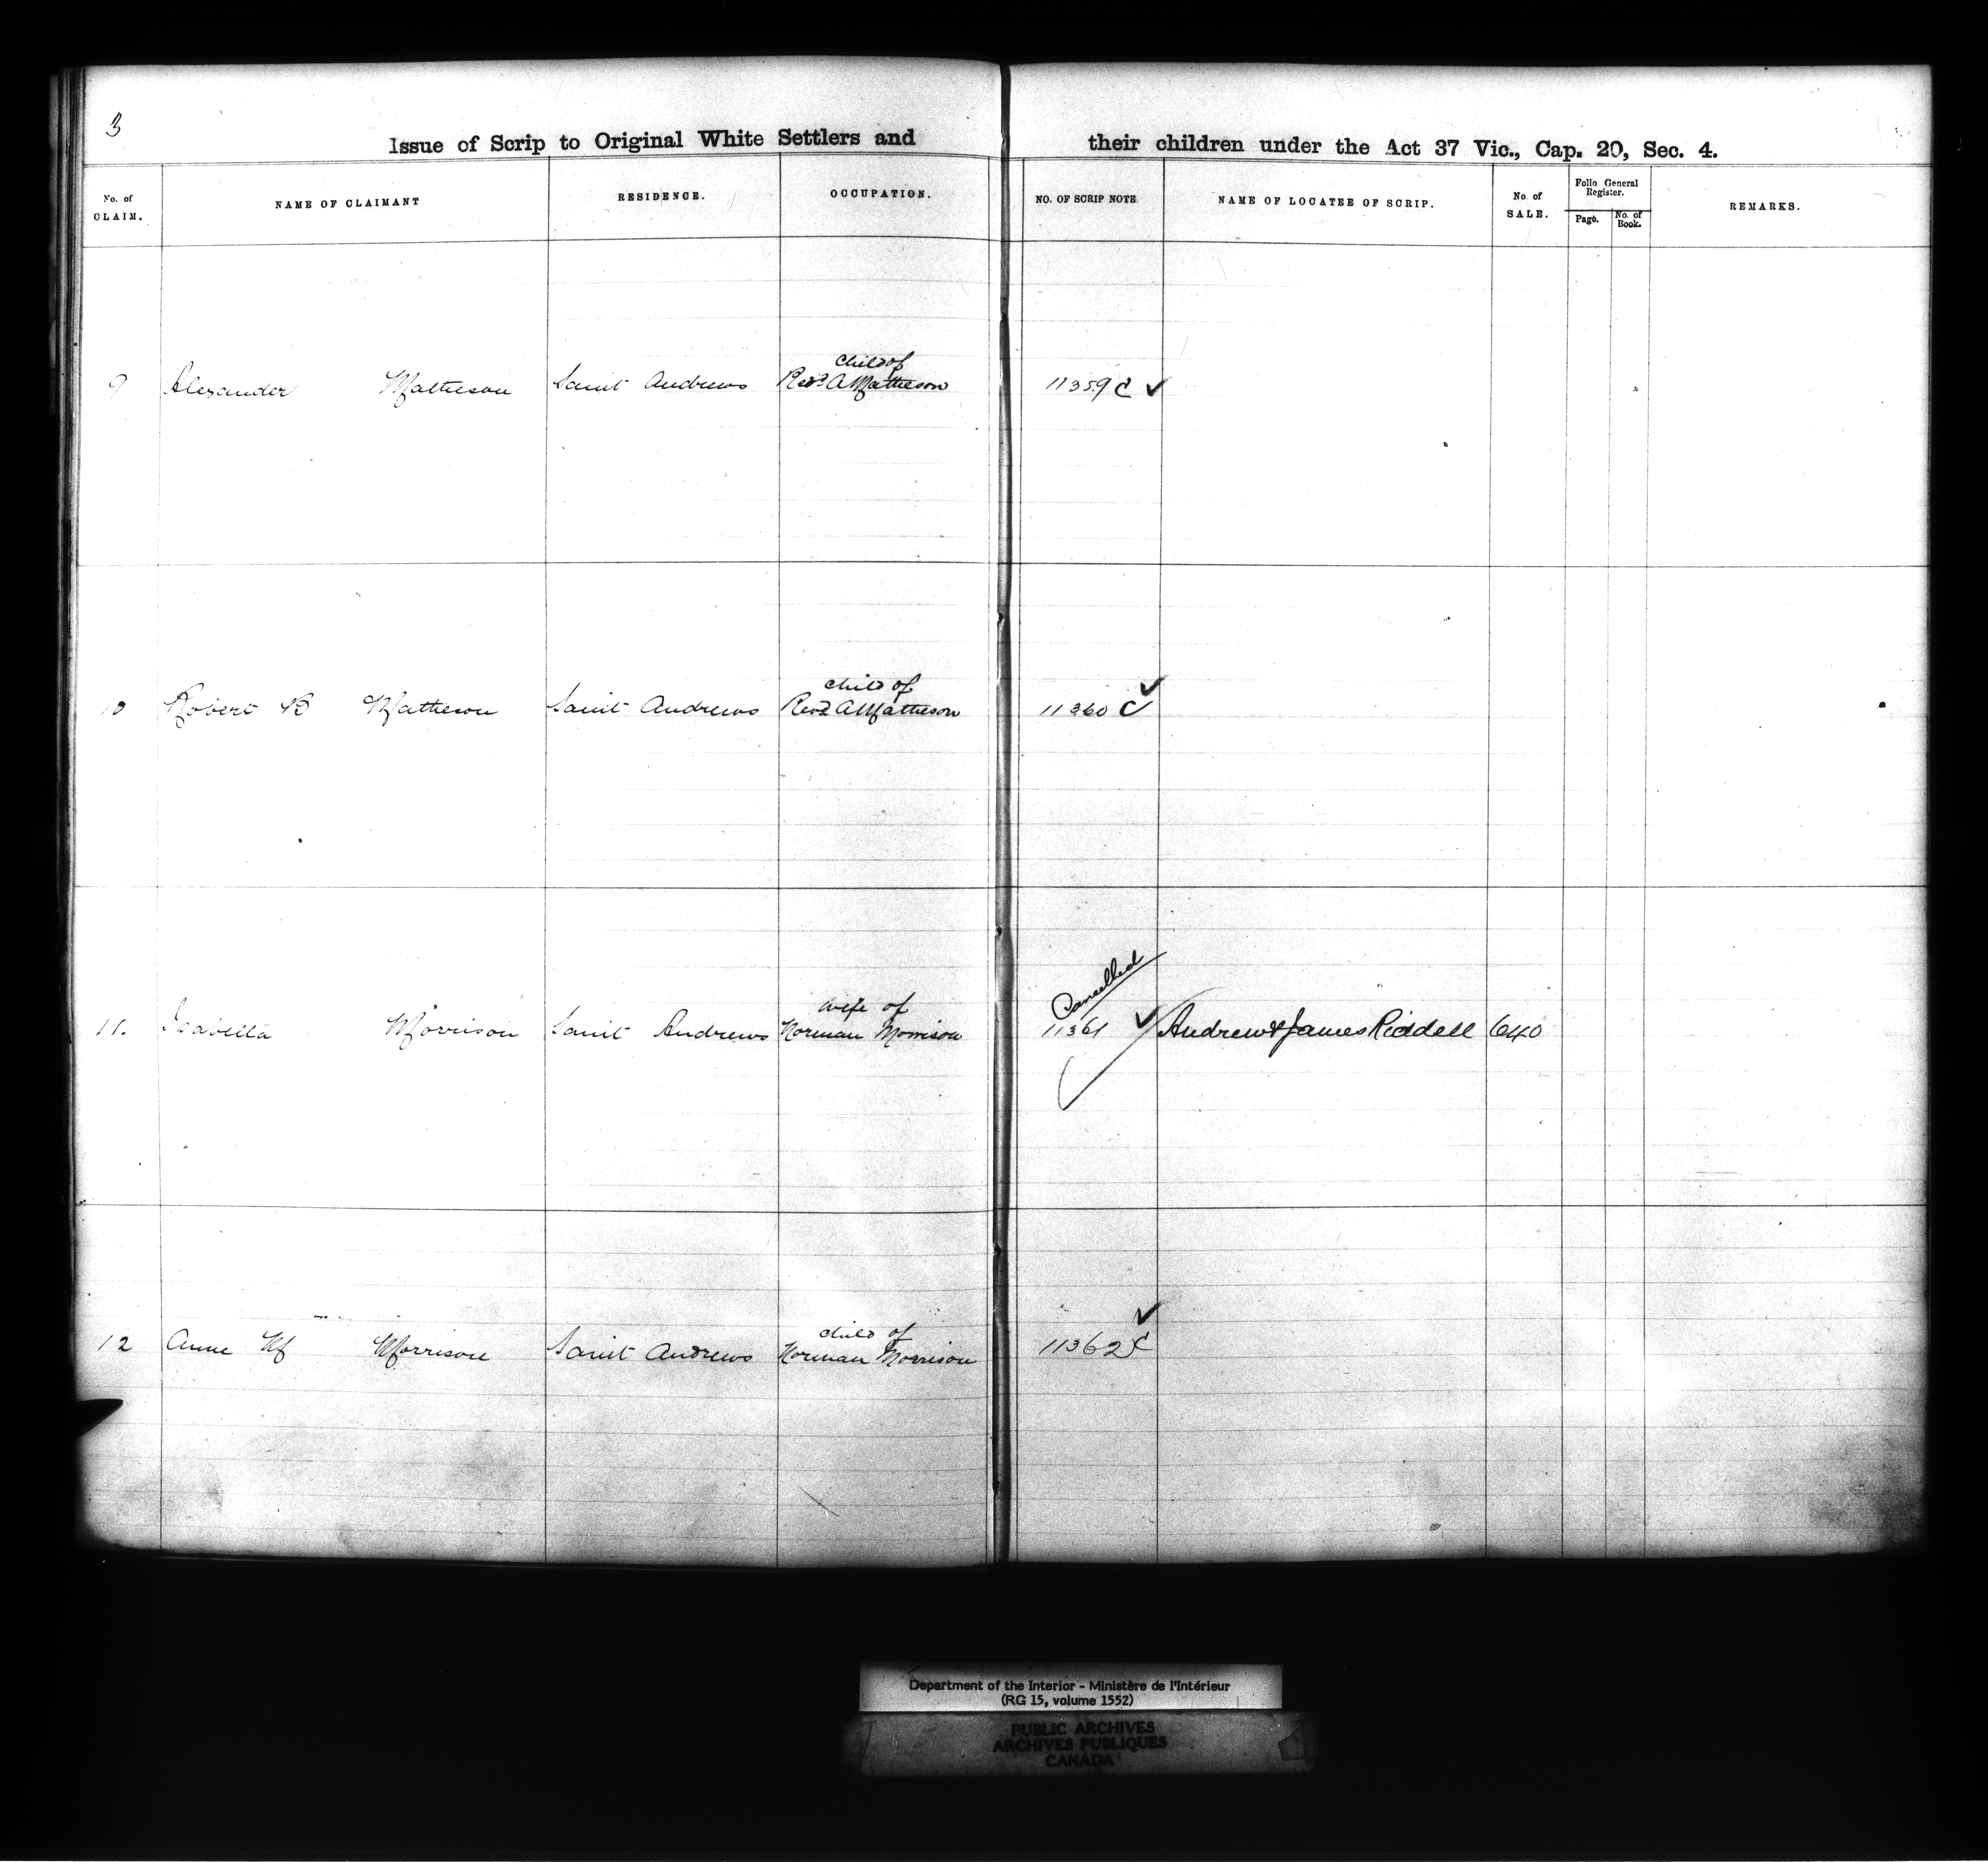 3
Issue of Scrip to Original White Settlers and their children under the Act 37 Vic., Cap. 20, Sec. 4.
No. of CLAIM. NAME OF CLAIMANT RESIDENCE. OCCUPATION. NO. OF SCRIP NOTE. NAME OF LOCATEE OF SCRIP. No. of SALE. Folio General Register. Page. No. of Book. REMARKS.
child of
9 Alexander Matheson Saint Andrews Revd A Matheson 11359 C ✓
child of
10 Robert B Matheson Saint Andrews Revd A Matheson 11360 C ✓
Cancelled
wife of
11. Isabella Morrison Saint Andrews Norman Morrison 11361 ✓ Andrew & James Riddell 640
child of
12 Anne M Morrison Saint Andrews Norman Morrison 11362 C ✓
Department of the Interior - Ministère de l'Intérieur
(RG 15, volume 1552)
PUBLIC ARCHIVES
ARCHIVES PUBLIQUES
CANADA